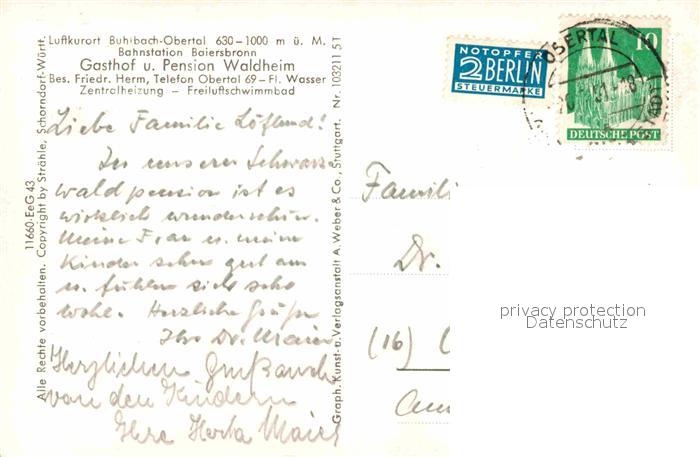 Luftkurort Buhlbach-Obertal 630–1000 m ü. M.
Bahnstation Baiersbronn
Gasthof u. Pension Waldheim
Bes. Friedr. Herm, Telefon Obertal 69 – Fl. Wasser
Zentralheizung – Freiluftschwimmbad
Liebe Familie Löflund!
In unserer Schwarz-
wald pension ist es
wirklich wunderschön.
Meine Frau u. meine
Kinder sehn gut aus
u. fühlen sich sehr
wohl. Herzliche Grüße
Ihr Dr. Maier
Herzlichen Gruß auch
von den Kindern
Ihre Herta Maier
11660-EeG 43
Alle Rechte vorbehalten. Copyright by Strähle, Schorndorf-Württ.
Graph. Kunst- u. Verlagsanstalt A. Weber & Co., Stuttgart. Nr. 103211 5 T
NOTOPFER
2 BERLIN
STEUERMARKE
OBERTAL
10
DEUTSCHE POST
Famili
Dr.
(16)
privacy protection
Datenschutz